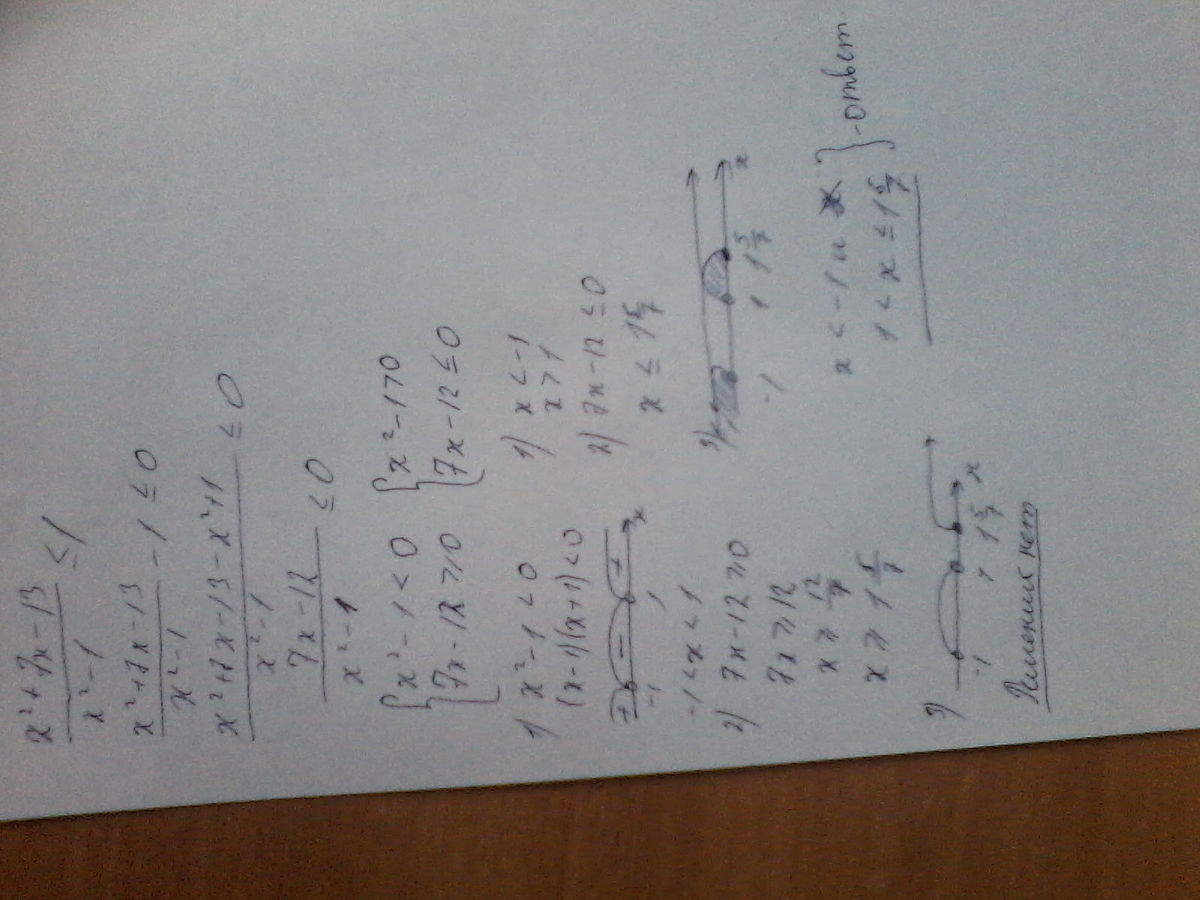 (x²+7x-13)/(x²-1) ≤ 1
(x²+7x-13)/(x²-1) - 1 ≤ 0
(x²+7x-13-x²+1)/(x²-1) ≤ 0
(7x-12)/(x²-1) ≤ 0
{x²-1<0
{7x-12≥0
1) x²-1<0
(x-1)(x+1)<0
+ - +
-1 1 x
-1<x<1
2) 7x-12≥0
7x≥12
x≥12/7
x≥1 5/7
3)
-1 1 1 5/7 x
Решений нет
{x²-1>0
{7x-12≤0
1) x<-1
x>1
2) 7x-12≤0
x≤1 5/7
3)
-1 1 1 5/7 x
x<-1 и
1<x≤1 5/7 } -ответ